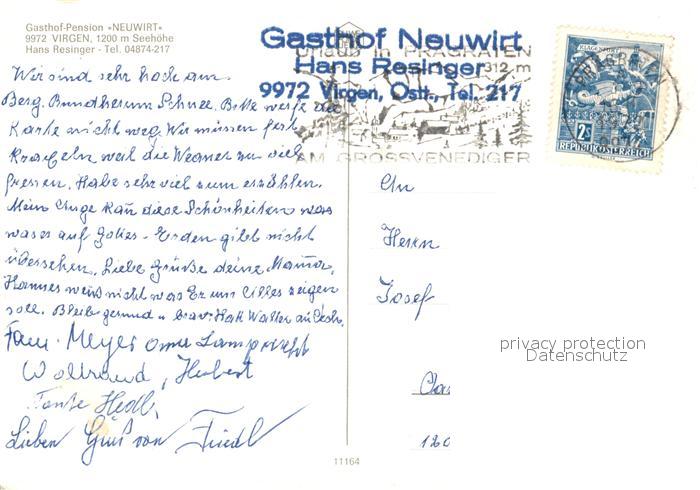 Gasthof-Pension »NEUWIRT«
9972 VIRGEN, 1200 m Seehöhe
Hans Resinger - Tel. 04874-217
Gasthof Neuwirt
Hans Resinger
9972 Virgen, Ostt., Tel. 217
Urlaub in PRÄGRATEN
1312 m
AM GROSSVENEDIGER
KLAGENFURT
2S
REPUBLIK ÖSTERREICH
Wir sind sehr hoch am
Berg. Rundherum Schnee. Bitte werfe die
Karte nicht weg. Wir müssen fest
kraxeln weil die Weaner zu viel
fressen. Habe sehr viel zum erzählen.
Mein Auge kan diese Schönheiten was
was es auf Gottes-Erden gibt nicht
übersehen. Liebe Grüße deine Mama.
Hannes weiß nicht was Er uns alles zeigen
soll. Bleib gesund u brav. Walter
Fam. Meyer
Waltraud, Herbert
Tante Hedi,
Lieben Gruß von Friedl
An
Herrn
Josef
120
privacy protection
Datenschutz
11164